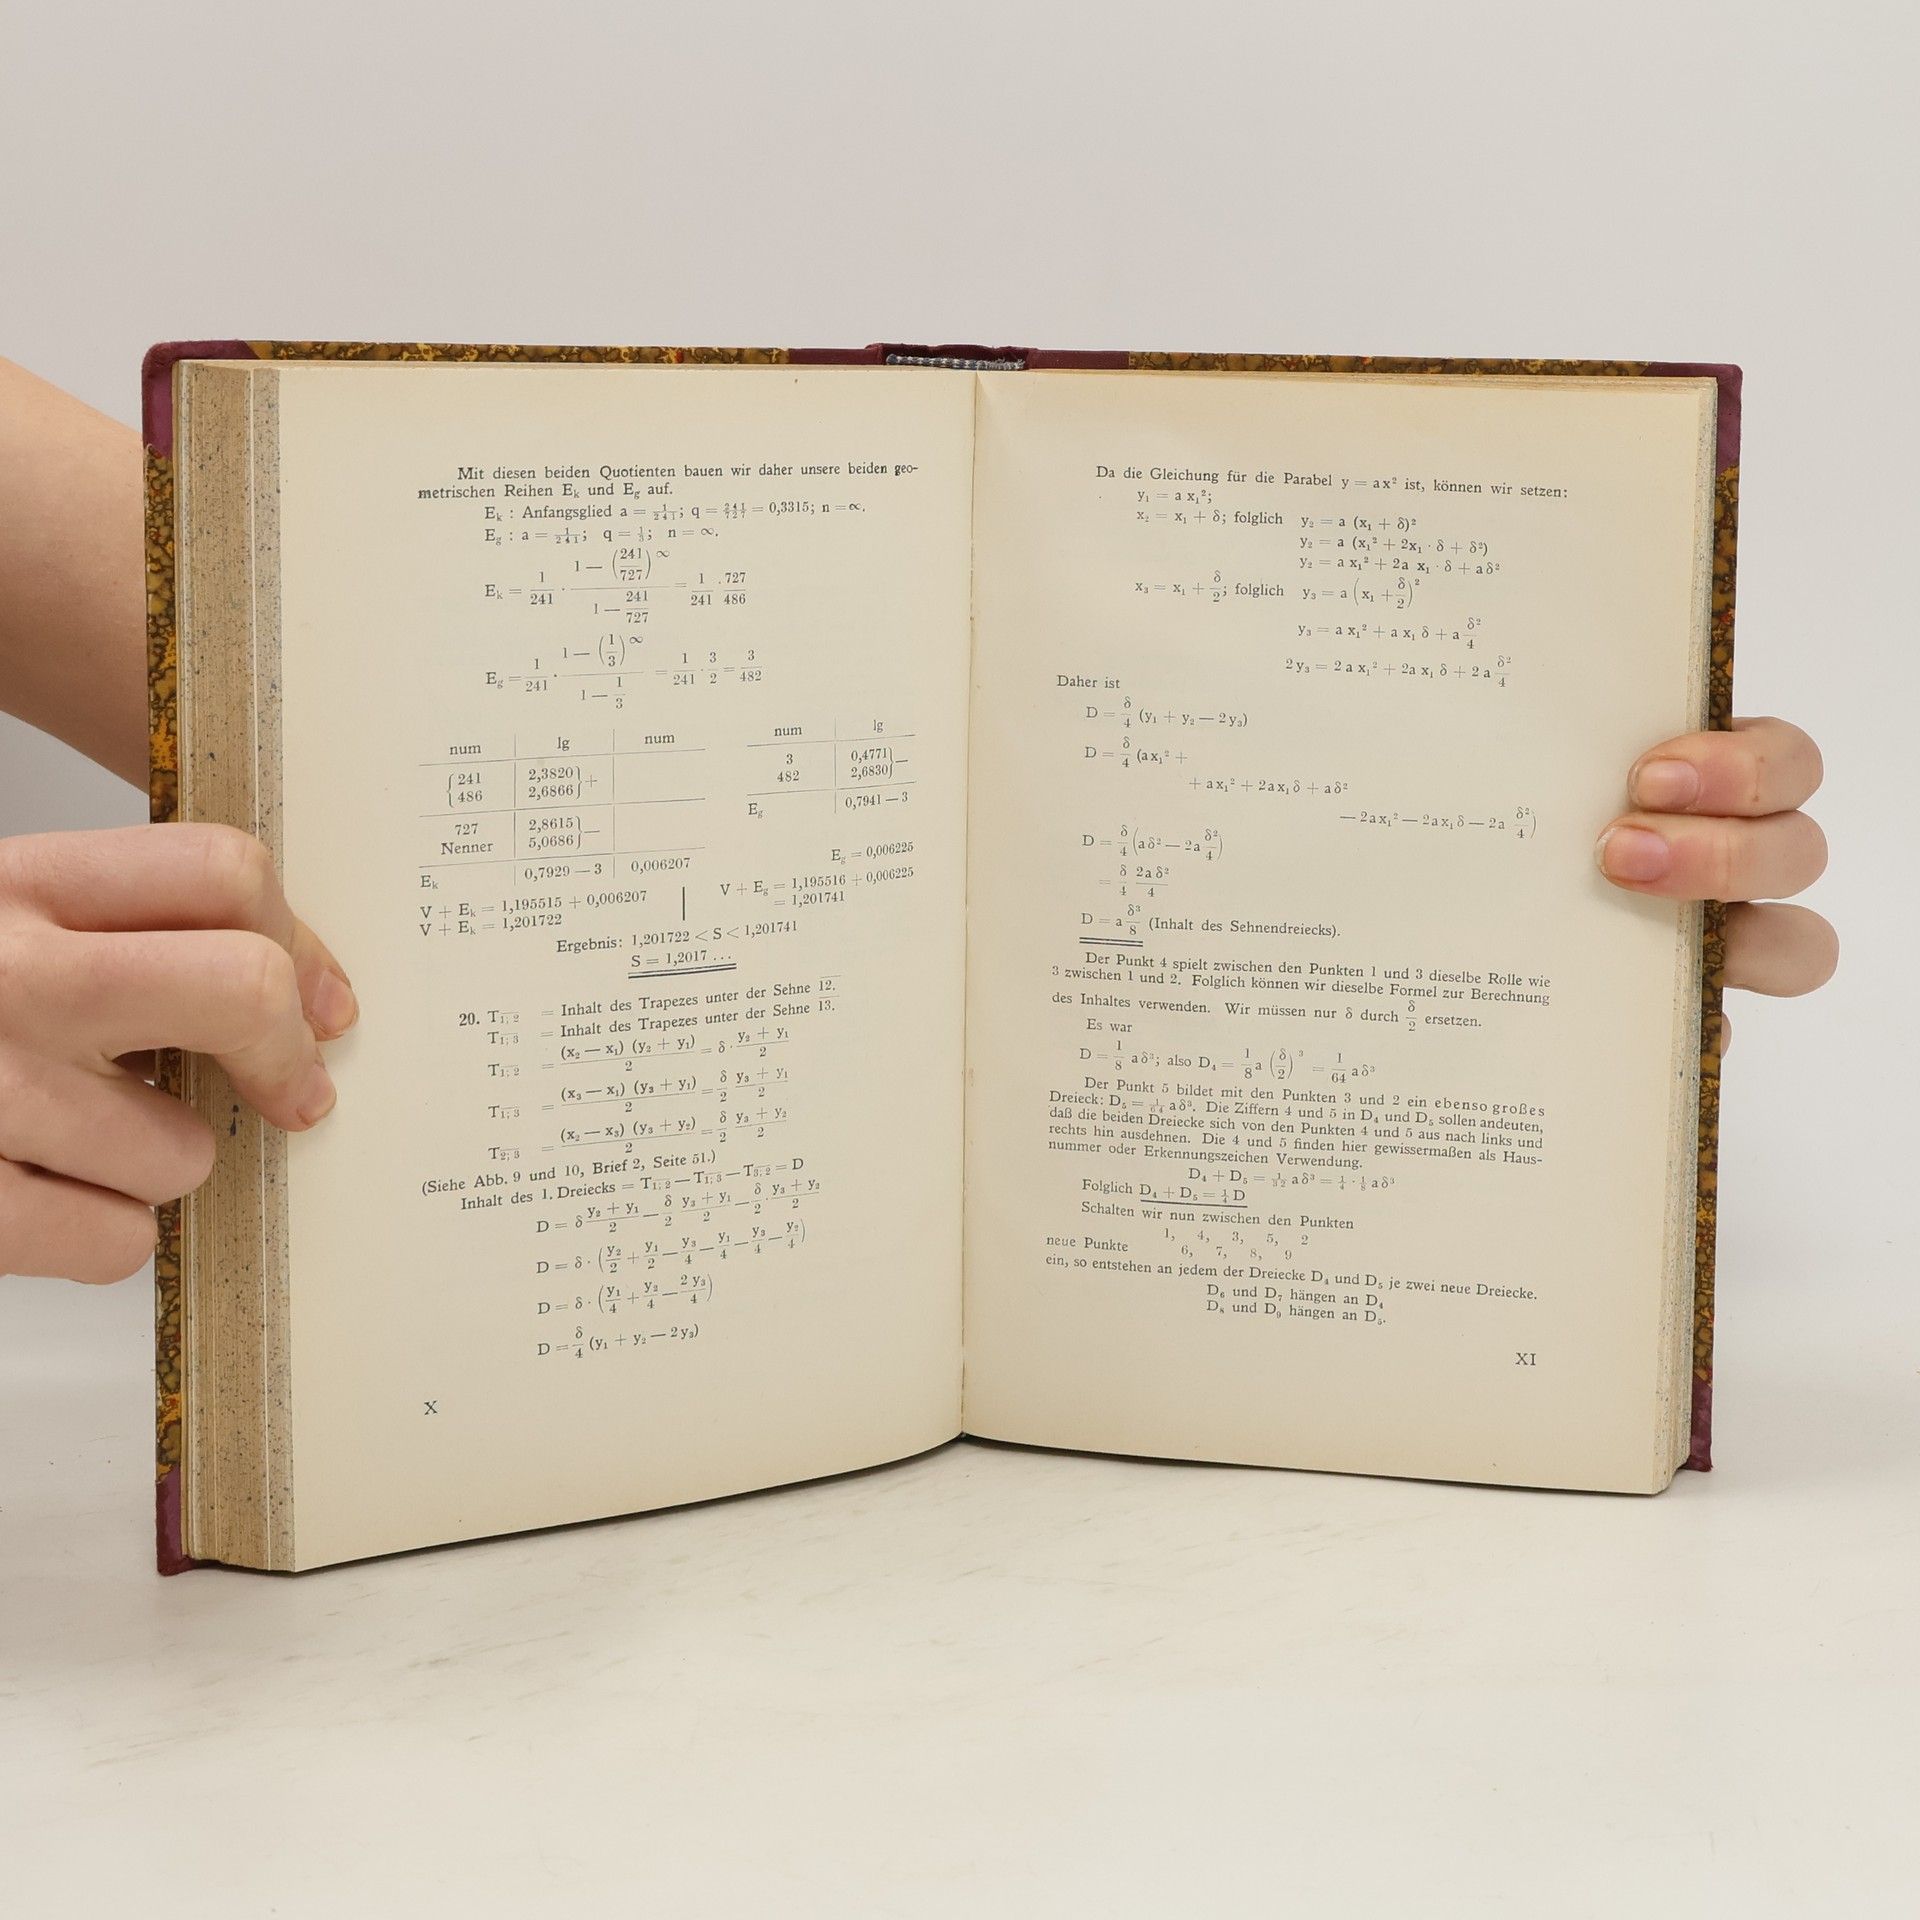 Mit diesen beiden Quotienten bauen wir daher unsere beiden geo-
metrischen Reihen Eₖ und E_g auf.
Eₖ : Anfangsglied a = 1/241; q = 241/727 = 0,3315; n = ∞.
E_g : a = 1/241; q = 1/3; n = ∞.
Eₖ = 1/241 · (1 — (241/727)^∞)/(1 — 241/727) = 1/241 · 727/486
E_g = 1/241 · (1 — (1/3)^∞)/(1 — 1/3) = 1/241 · 3/2 = 3/482
num | lg | num
{ 241 | 2,3820 } +
{ 486 | 2,6866 }
727 | 2,8615 } —
Nenner | 5,0686 }
Eₖ | 0,7929 — 3 | 0,006207
V + Eₖ = 1,195515 + 0,006207
V + Eₖ = 1,201722
num | lg
3 | 0,4771 } —
482 | 2,6830 }
E_g | 0,7941 — 3
E_g = 0,006225
V + E_g = 1,195516 + 0,006225
= 1,201741
Ergebnis: 1,201722 < S < 1,201741
S = 1,2017 ...
20. T1;2 = Inhalt des Trapezes unter der Sehne 12.
T1;3 = Inhalt des Trapezes unter der Sehne 13.
T1;2 = (x₂ — x₁) (y₂ + y₁)/2 = δ · (y₂ + y₁)/2
T1;3 = (x₃ — x₁) (y₃ + y₁)/2 = δ/2 (y₃ + y₁)/2
T2;3 = (x₂ — x₃) (y₃ + y₂)/2 = δ/2 (y₃ + y₂)/2
(Siehe Abb. 9 und 10, Brief 2, Seite 51.)
Inhalt des 1. Dreiecks = T1;2 — T1;3 — T3;2 = D
D = δ (y₂ + y₁)/2 — δ/2 (y₃ + y₁)/2 — δ/2 · (y₃ + y₂)/2
D = δ · (y₂/2 + y₁/2 — y₃/4 — y₁/4 — y₃/4 — y₂/4)
D = δ · (y₁/4 + y₂/4 — 2 y₃/4)
D = δ/4 (y₁ + y₂ — 2 y₃)
X
Da die Gleichung für die Parabel y = ax² ist, können wir setzen:
y₁ = a x₁²;
x₂ = x₁ + δ; folglich y₂ = a (x₁ + δ)²
y₂ = a (x₁² + 2x₁ · δ + δ²)
y₂ = a x₁² + 2a x₁ · δ + aδ²
x₃ = x₁ + δ/2; folglich y₃ = a (x₁ + δ/2)²
y₃ = a x₁² + a x₁ δ + a δ²/4
2 y₃ = 2 a x₁² + 2a x₁ δ + 2 a δ²/4
Daher ist
D = δ/4 (y₁ + y₂ — 2 y₃)
D = δ/4 (ax₁² +
+ ax₁² + 2ax₁δ + aδ²
— 2ax₁² — 2ax₁δ — 2a δ²/4)
D = δ/4 (aδ² — 2a δ²/4)
= δ/4 2a δ²/4
D = a δ³/8 (Inhalt des Sehnendreiecks).
Der Punkt 4 spielt zwischen den Punkten 1 und 3 dieselbe Rolle wie
3 zwischen 1 und 2. Folglich können wir dieselbe Formel zur Berechnung
des Inhaltes verwenden. Wir müssen nur δ durch δ/2 ersetzen.
Es war
D = 1/8 aδ³; also D₄ = 1/8 a (δ/2)³ = 1/64 aδ³
Der Punkt 5 bildet mit den Punkten 3 und 2 ein ebenso großes
Dreieck: D₅ = 1/64 aδ³. Die Ziffern 4 und 5 in D₄ und D₅ sollen andeuten,
daß die beiden Dreiecke sich von den Punkten 4 und 5 aus nach links und
rechts hin ausdehnen. Die 4 und 5 finden hier gewissermaßen als Haus-
nummer oder Erkennungszeichen Verwendung.
D₄ + D₅ = 1/32 aδ³ = 1/4 · 1/8 aδ³
Folglich D₄ + D₅ = 1/4 D
Schalten wir nun zwischen den Punkten
1, 4, 3, 5, 2
neue Punkte 6, 7, 8, 9
ein, so entstehen an jedem der Dreiecke D₄ und D₅ je zwei neue Dreiecke.
D₆ und D₇ hängen an D₄
D₈ und D₉ hängen an D₅.
XI